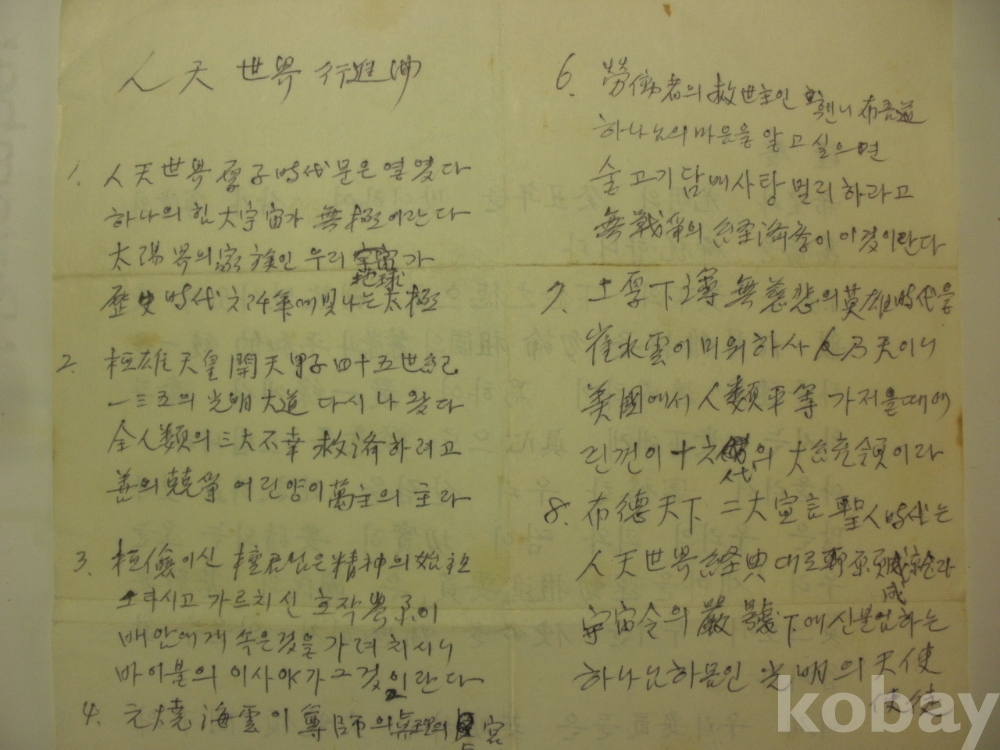 人天世界行進曲
1. 人天世界 原子時代 문은 열였다
하나의 힘 大宇宙가 無極이란다
太陽界의 家族인 우리 地球가
歷史時代 六千年에 빛나는 太極
2. 桓雄天皇 開天甲子 四十五世紀
一三五의 光明大道 다시 나왔다
全人類의 三大不幸 救濟하려고
善의 競爭 어린양이 萬主의 主라
3. 桓儉이신 檀君님은 精神의 始祖
오라시고 가르치신
배안에게 속은것을 가려치시니
바이불의 이사야가 그것이란다
4. 元燒海雲이 尊師의 眞理의
6. 勞働者의 救世主인 布吾道
하나님의 마음을 알고 싶으면
술고기 담배사탕 멀리하라고
無戰爭의 経済 이것이란다
7. 土厚下 無慈悲의 英雄時代를
崔水雲이 미워하사 人乃天이니
美國에서 人類平等 가저올때에
린컨이 十六代의 大統領이라
8. 布德天下 二大宣言 聖人時代는
人天世界 経典대로
宇宙令의 嚴號下에 신불업하는
하나님 하몸인 光明의 天使
使徒
kobay